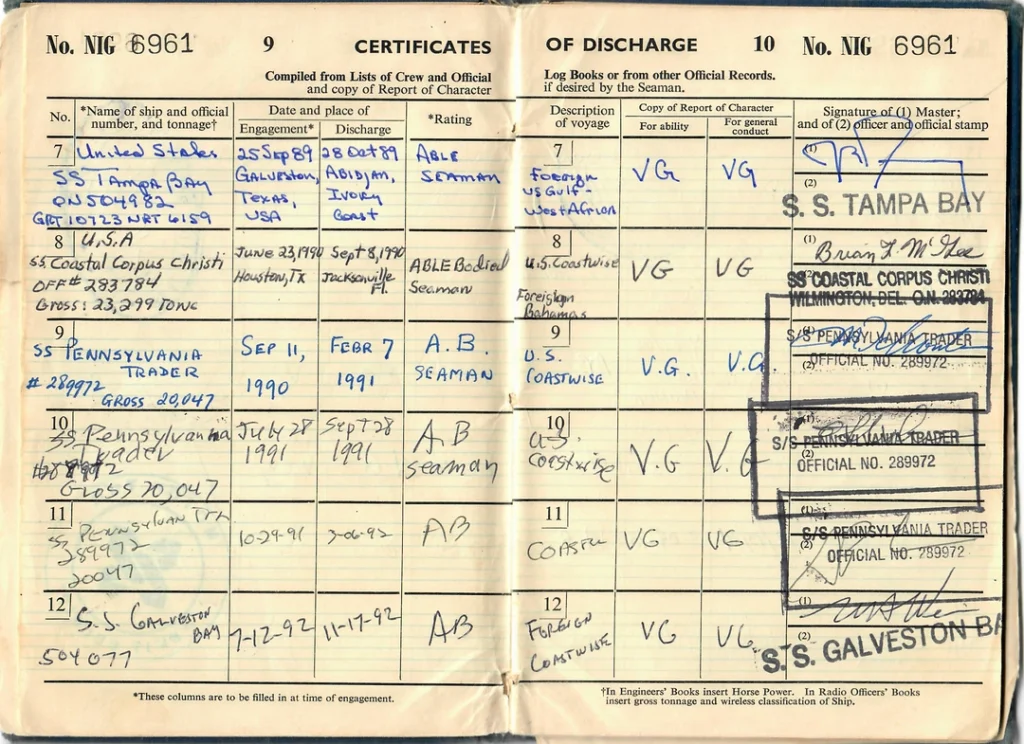 No. NIG 6961 9 CERTIFICATES
Compiled from Lists of Crew and Official
and copy of Report of Character
No. *Name of ship and official number, and tonnage† Date and place of Engagement* Discharge *Rating
7 United States 25 Sep 89 28 Oct 89 ABLE
SS TAMPA BAY GALVESTON, ABIDJAN, SEAMAN
ON 504982 TEXAS, IVORY
GRT 10723 NRT 6159 USA Coast
8 U.S.A June 23, 1990 Sept 8, 1990
SS Coastal Corpus Christi Houston, Tx Jacksonville ABLE Bodied
OFF# 283784 Fl. Seaman
Gross: 23,299 Tons
9 SS PENNSYLVANIA SEP 11, FEBR 7 A.B.
TRADER 1990 1991 SEAMAN
# 289972
GROSS 20,047
10 SS Pennsylvania July 28 Sept 28 AB
Trader 1991 1991 seaman
#289972
Gross 20,047
11 SS PENNSYLVAN TRA 10-29-91 AB
289972
20047
12 S.S. GALVESTON 7-12-92 11-17-92 AB
BAY
504077
*These columns are to be filled in at time of engagement.
OF DISCHARGE 10 No. NIG 6961
Log Books or from other Official Records.
if desired by the Seaman.
Description of voyage Copy of Report of Character For ability For general conduct Signature of (1) Master; and of (2) officer and official stamp
7 Foreign VG VG (1)
US Gulf- (2)
West African S. S. TAMPA BAY
8 U.S. Coastwise VG VG (1) Brian F. McGee
Foreign SS COASTAL CORPUS CHRISTI
Bahamas WILMINGTON, DEL. O.N. 283784
9 U.S. V.G. V.G. (1) S/S PENNSYLVANIA TRADER
COASTWISE (2) OFFICIAL NO. 289972
10 U.S. V.G V.G (1) S/S PENNSYLVANIA TRADER
Coastwise (2) OFFICIAL NO. 289972
11 COASTAL VG VG (1) S/S PENNSYLVANIA TRADER
(2) OFFICIAL NO. 289972
12 FOREIGN VG VG (1)
COASTWISE (2) S. S. GALVESTON BA
†In Engineers' Books insert Horse Power. In Radio Officers' Books
insert gross tonnage and wireless classification of Ship.